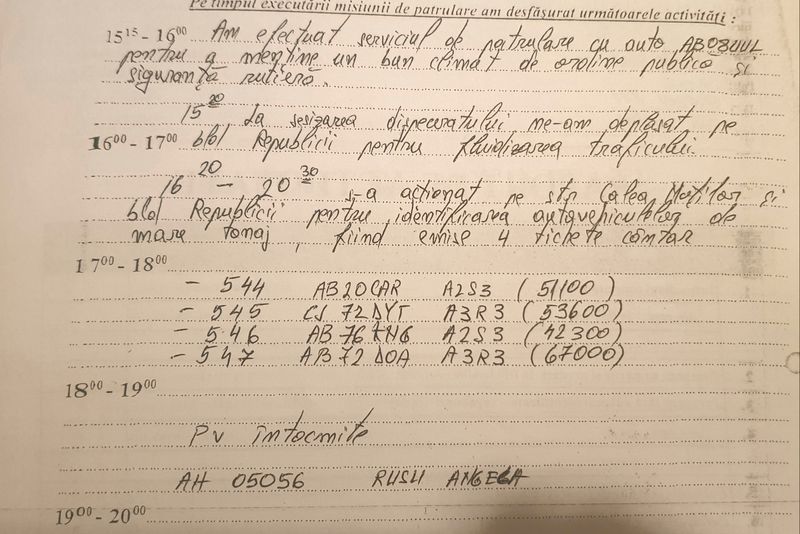 Pe timpul executării misiunii de patrulare am desfășurat următoarele activități :
15¹⁵ - 16⁰⁰ Am efectuat serviciul de patrulare cu auto AB08UUL
pentru a menține un bun climat de ordine publică și
siguranță rutieră.
15²⁰ La sesizarea dispeceratului me-am deplasat pe
16⁰⁰ - 17⁰⁰ bld Republicii pentru fluidizarea traficului.
16²⁰ - 20³⁰ s-a acționat pe str Calea Moților și
bld Republicii pentru identificarea autovehiculelor de
mare tonaj, fiind emise 4 tichete cântar
17⁰⁰ - 18⁰⁰
- 544 AB20CAR A2S3 (51100)
- 545 CJ 72DYT A3R3 (53600)
- 546 AB 76 A2S3 (42300)
- 547 AB 72 DOA A3R3 (67000)
18⁰⁰ - 19⁰⁰
Pv întocmite
AH 05056 RUSU ANGELA
19⁰⁰ - 20⁰⁰